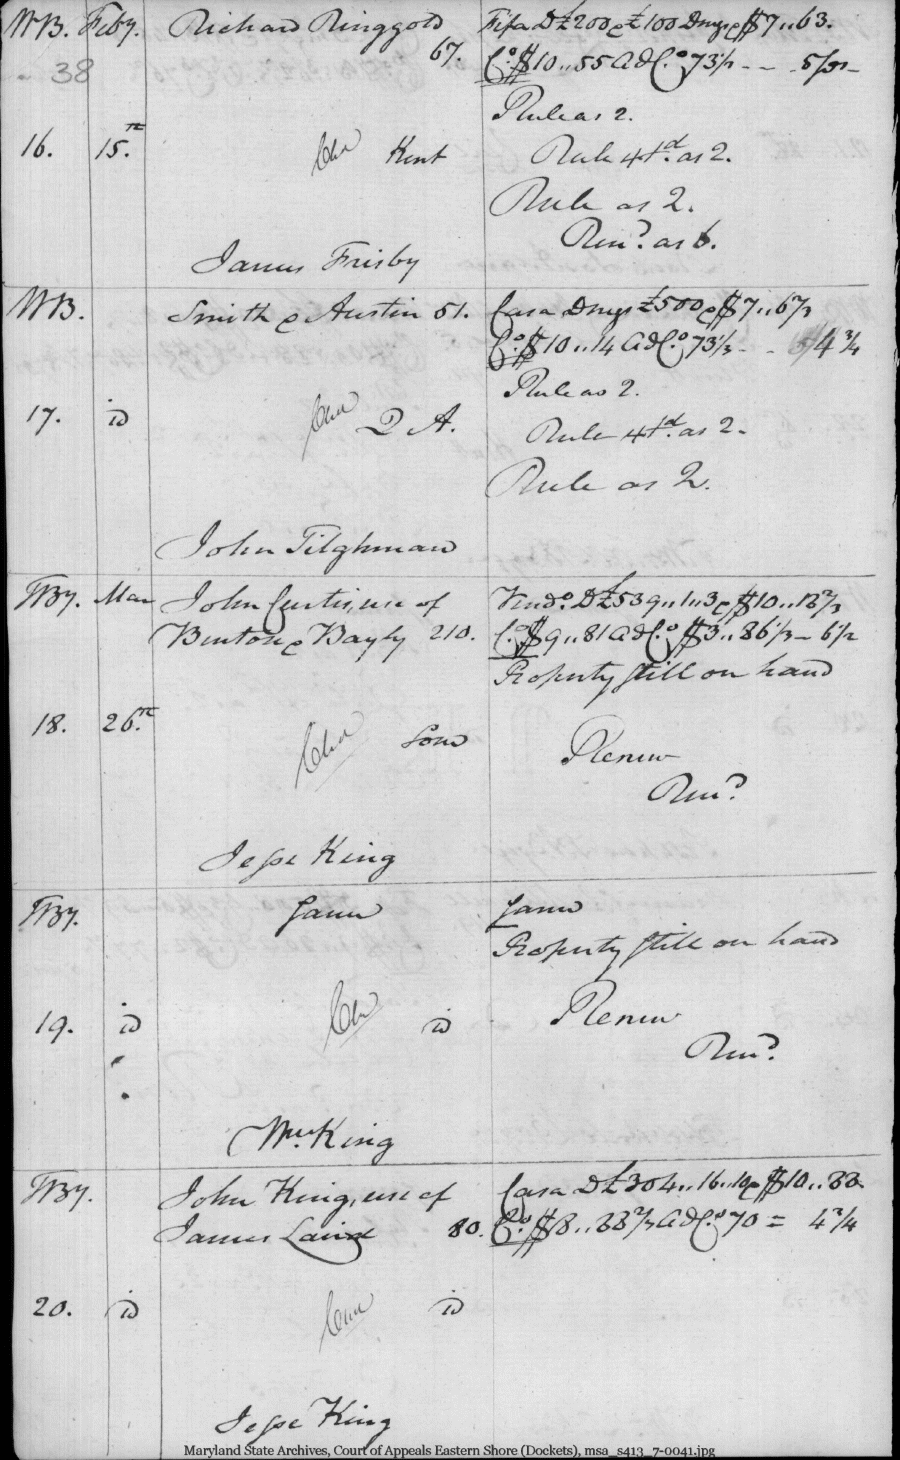 WB. Feby. Richard Ringgold 67. Fifa D £200 & £100 Dmgs & $7..63.
38 Co. $10..55 Ad Co. 73⅓ - - 5/3
Rule as 2.
16. 15.th Kent Rule 4td. as 2.
Rule as 2.
Rend. as 6.
James Frisby
WB. Smith & Austin 51. Casa Dmgs £500 & $7..67⅓
Co. $10..14 Ad Co. 73⅓ - - 4¾
Rule as 2.
17. id 2 A. Rule 4td. as 2.
Rule as 2.
John Tilghman
TBy. Mar John Curtis, use of Vendo. D £539..1..3 & $10..13⅔
Benton & Bayly 210. Co. $9..81 Ad Co. $3..86⅓ - 6½
Property still on hand
18. 26.th Som Renew
Rend.
Jesse King
TBy. Same Same
Property still on hand
19. id id Renew
Rend.
Wm. King
TBy. John King, use of Casa D £304..16..10 & $10..33
James Laird 80. Co. $8..33⅓ Ad Co. 70 = 4¾
20. id id
Jesse King
Maryland State Archives, Court of Appeals Eastern Shore (Dockets), msa_s413_7-0041.jpg